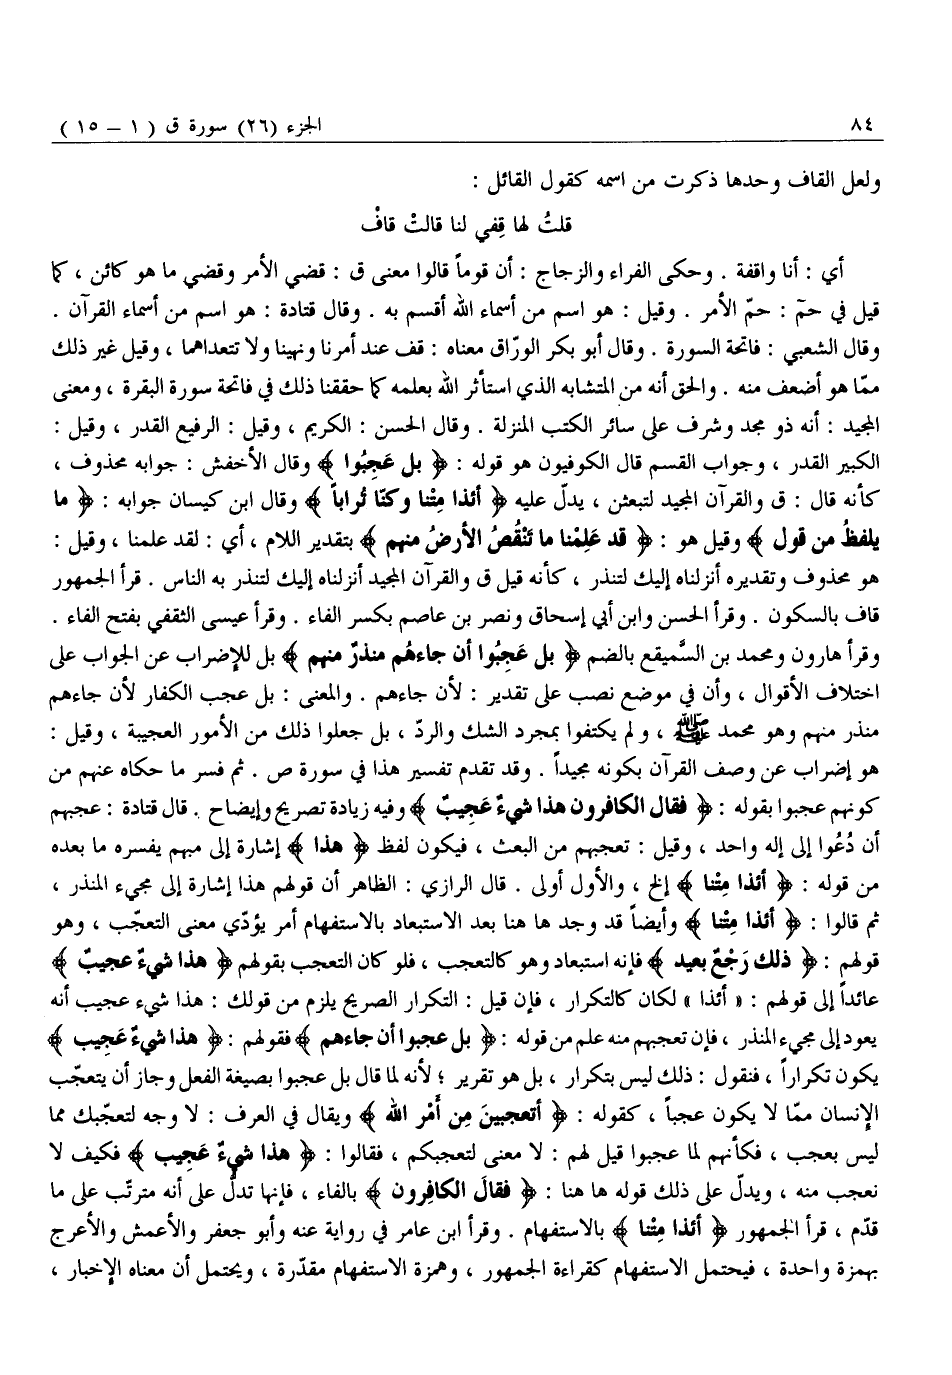 ٨٤ الجزء (٢٦) سورة ق ( ١ – ١٥ )
ولعل القاف وحدها ذكرت من اسمه كقول القائل :
قلتُ لها قِفي لنا قالتْ قافْ
أي : أنا واقفة . وحكى الفراء والزجاج : أن قوماً قالوا معنى ق : قضي الأمر وقضي ما هو كائن ، كما
قيل في حمۤ : حمّ الأمر . وقيل : هو اسم من أسماء الله أقسم به . وقال قتادة : هو اسم من أسماء القرآن .
وقال الشعبي : فاتحة السورة . وقال أبو بكر الورّاق معناه : قف عند أمرنا ونهينا ولا تتعداهما ، وقيل غير ذلك
ممّا هو أضعف منه . والحق أنه من المتشابه الذي استأثر الله بعلمه كما حققنا ذلك في فاتحة سورة البقرة ، ومعنى
المجيد : أنه ذو مجد وشرف على سائر الكتب المنزلة . وقال الحسن : الكريم ، وقيل : الرفيع القدر ، وقيل :
الكبير القدر ، وجواب القسم قال الكوفيون هو قوله : ﴿ بل عَجِبُوا ﴾ وقال الأخفش : جوابه محذوف ،
كأنه قال : ق والقرآن المجيد لتبعثن ، يدلّ عليه ﴿ أئذا مِتْنا وكنّا تُراباً ﴾ وقال ابن كيسان جوابه : ﴿ ما
يلفظُ من قول ﴾ وقيل هو : ﴿ قد عَلِمْنا ما تَنْقُصُ الأرضُ منهم ﴾ بتقدير اللام ، أي : لقد علمنا ، وقيل :
هو محذوف وتقديره أنزلناه إليك لتنذر ، كأنه قيل ق والقرآن المجيد أنزلناه إليك لتنذر به الناس . قرأ الجمهور
قاف بالسكون . وقرأ الحسن وابن أبي إسحاق ونصر بن عاصم بكسر الفاء . وقرأ عيسى الثقفي بفتح الفاء .
وقرأ هارون ومحمد بن السَّميقع بالضم ﴿ بل عَجِبُوا أن جاءهُم منذرٌ منهم ﴾ بل للإضراب عن الجواب على
اختلاف الأقوال ، وأن في موضع نصب على تقدير : لأن جاءهم . والمعنى : بل عجب الكفار لأن جاءهم
منذر منهم وهو محمد ﷺ ، ولم يكتفوا بمجرد الشك والردّ ، بل جعلوا ذلك من الأمور العجيبة ، وقيل :
هو إضراب عن وصف القرآن بكونه مجيداً . وقد تقدم تفسير هذا في سورة ص . ثم فسر ما حكاه عنهم من
كونهم عجبوا بقوله : ﴿ فقال الكافرون هذا شيءٌ عَجِيبٌ ﴾ وفيه زيادة تصريح وإيضاح . قال قتادة : عجبهم
أن دُعُوا إلى إله واحد ، وقيل : تعجبهم من البعث ، فيكون لفظ ﴿ هذا ﴾ إشارة إلى مبهم يفسره ما بعده
من قوله : ﴿ أئذا مِتْنا ﴾ إلخ ، والأول أولى . قال الرازي : الظاهر أن قولهم هذا إشارة إلى مجيء المنذر ،
ثم قالوا : ﴿ أئذا مِتْنا ﴾ وأيضاً قد وجد ها هنا بعد الاستبعاد بالاستفهام أمر يؤدّي معنى التعجّب ، وهو
قولهم : ﴿ ذلك رَجْعٌ بعيد ﴾ فإنه استبعاد وهو كالتعجب ، فلو كان التعجب بقولهم ﴿ هذا شيءٌ عجيبٌ ﴾
عائداً إلى قولهم : « أئذا » لكان كالتكرار ، فإن قيل : التكرار الصريح يلزم من قولك : هذا شيء عجيب أنه
يعود إلى مجيء المنذر ، فإن تعجبهم منه علم من قوله : ﴿ بل عجبوا أن جاءهم ﴾ فقولهم : ﴿ هذا شيءٌ عَجِيب ﴾
يكون تكراراً ، فنقول : ذلك ليس بتكرار ، بل هو تقرير ؛ لأنه لما قال بل عجبوا بصيغة الفعل وجاز أن يتعجّب
الإنسان ممّا لا يكون عجباً ، كقوله : ﴿ أتعجبينَ مِن أَمْر الله ﴾ ويقال في العرف : لا وجه لتعجّبك مما
ليس بعجب ، فكأنهم لما عجبوا قيل لهم : لا معنى لتعجبكم ، فقالوا : ﴿ هذا شيءٌ عَجِيب ﴾ فكيف لا
نعجب منه ، ويدلّ على ذلك قوله ها هنا : ﴿ فقالَ الكافِرون ﴾ بالفاء ، فإنها تدلّ على أنه مترتّب على ما
قدّم ، قرأ الجمهور ﴿ أئذا مِتْنا ﴾ بالاستفهام . وقرأ ابن عامر في رواية عنه وأبو جعفر والأعمش والأعرج
بهمزة واحدة ، فيحتمل الاستفهام كقراءة الجمهور ، وهمزة الاستفهام مقدّرة ، ويحتمل أن معناه الإخبار ،